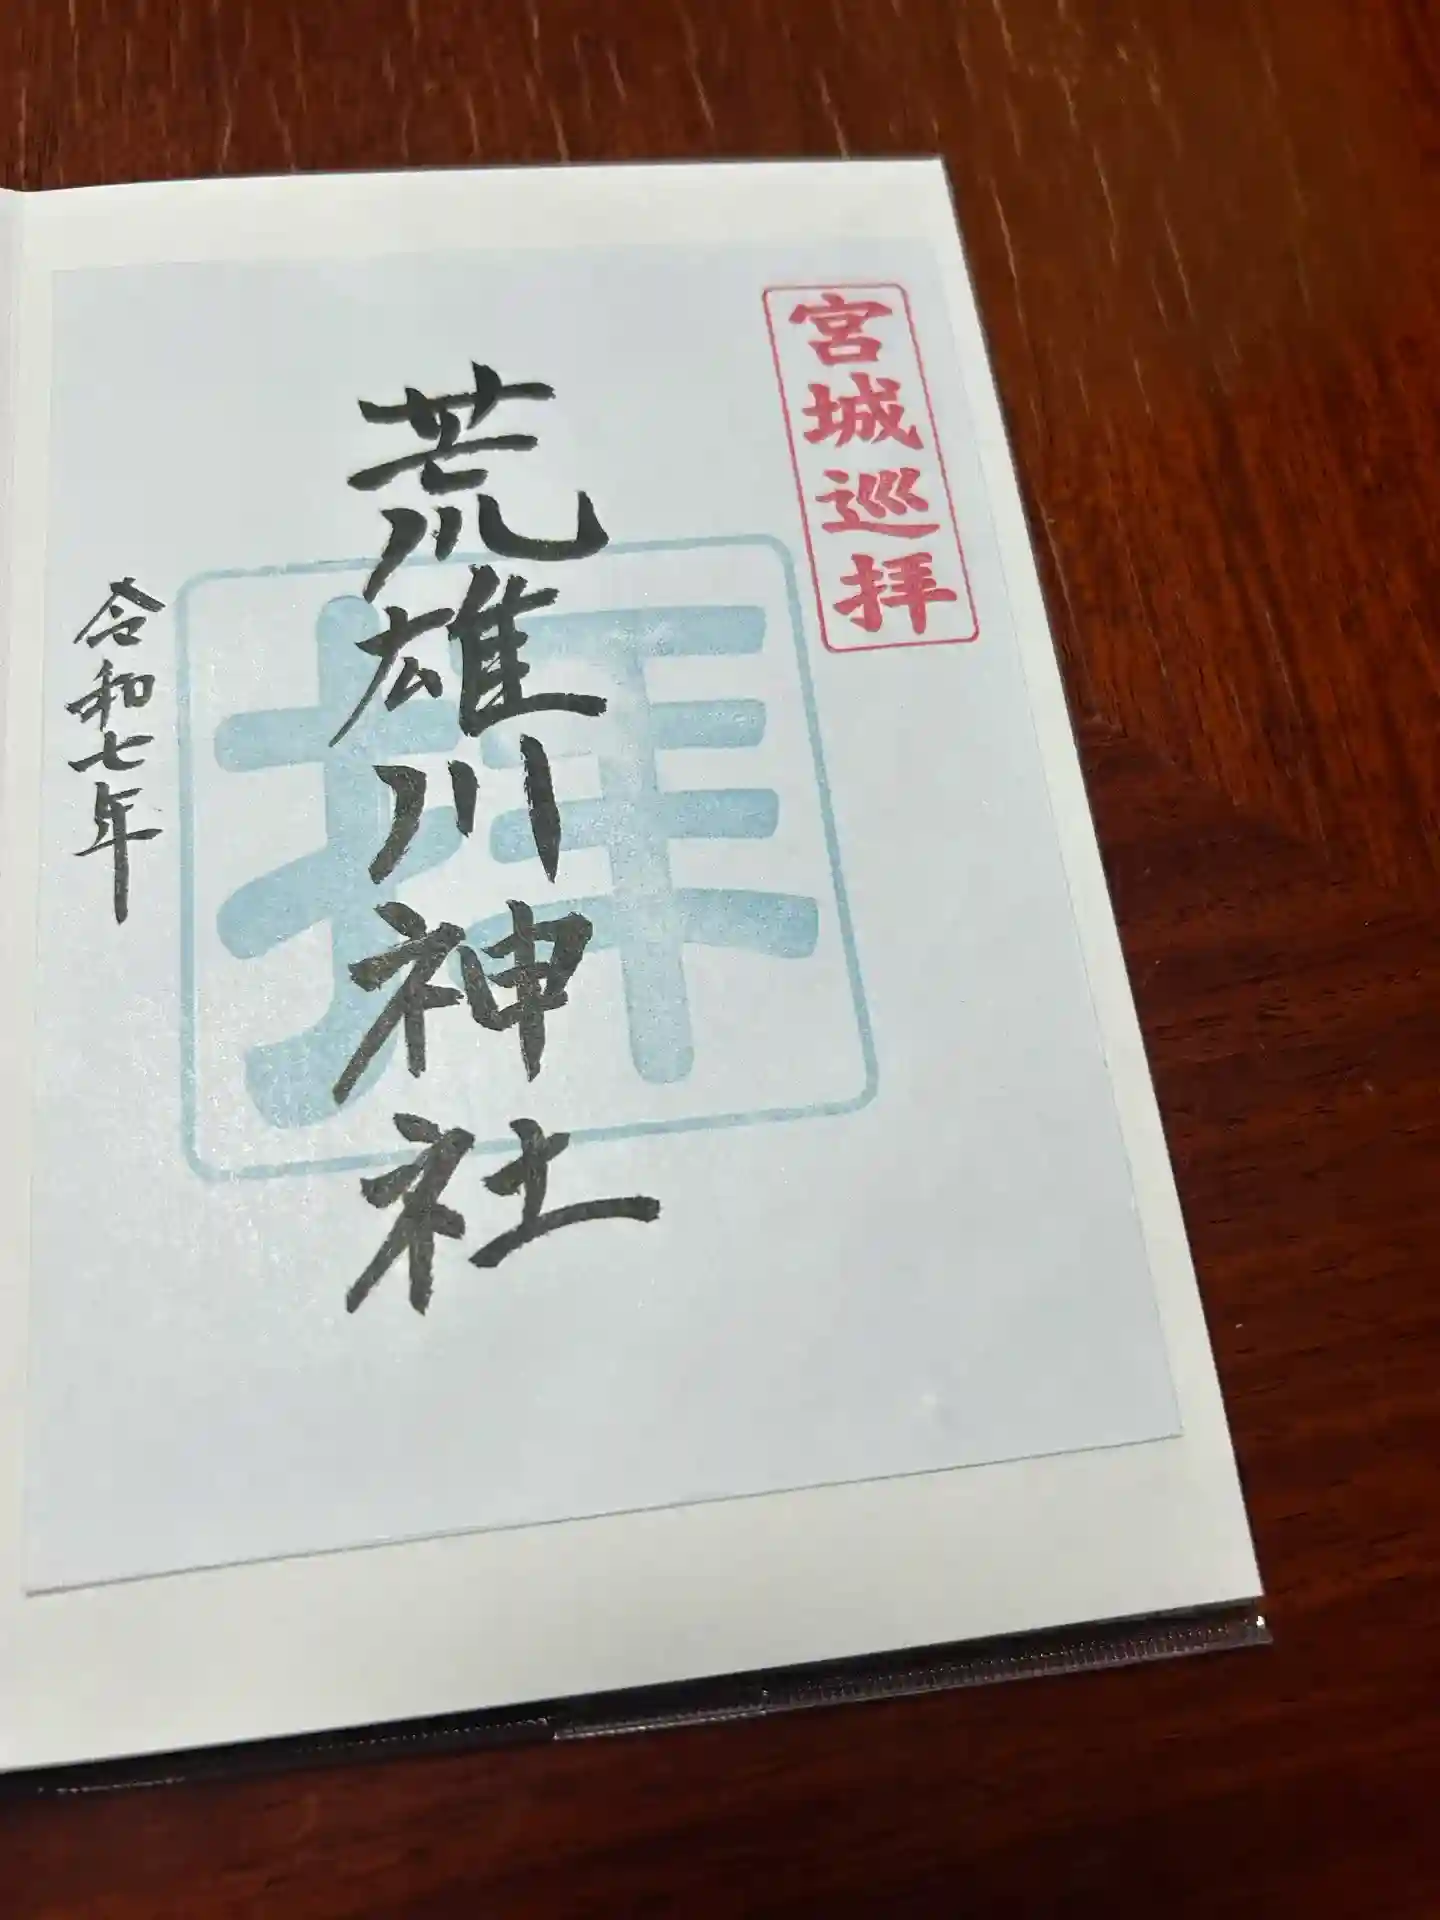 宮城巡拝
荒雄川神社
拝
令和七年